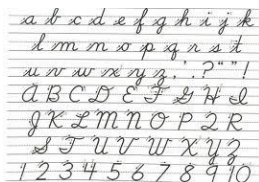 a b c d e f g h i j k
l m n o p q r s t
u v w x y z . ' . ? “ ” !
A B C D E F G H I
J K L M N O P Q R
S T U V W X Y Z
1 2 3 4 5 6 7 8 9 10